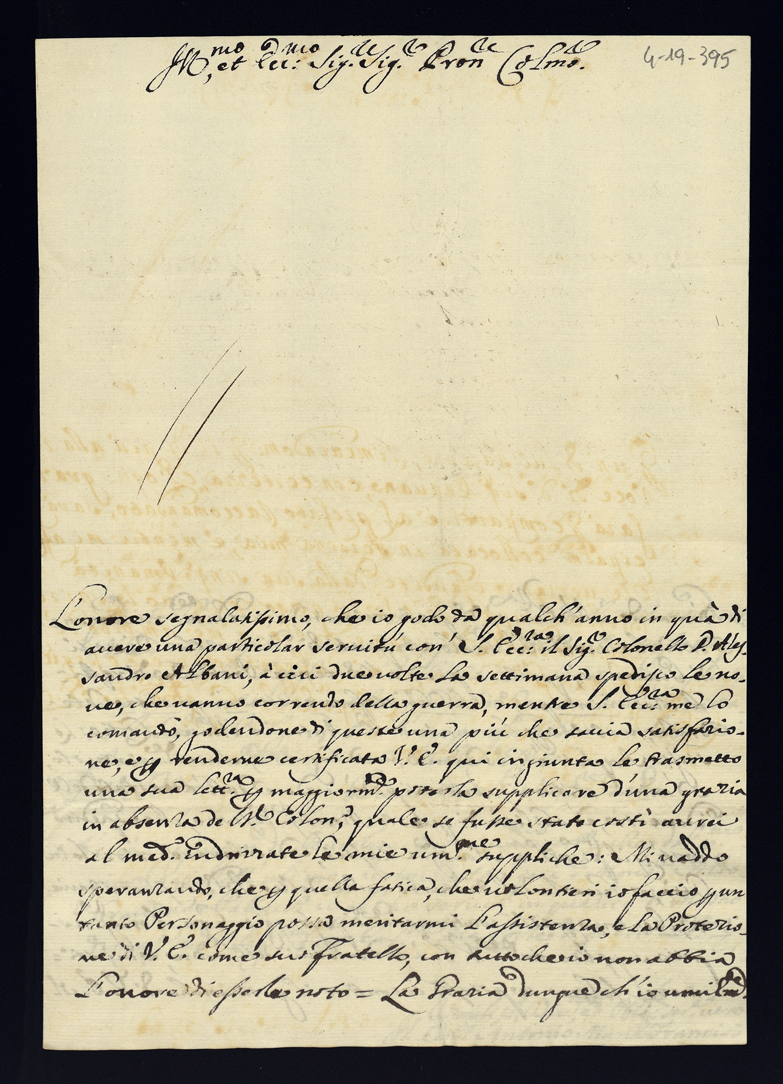 Ill.mo, et Ecc: Sig.re Sig.r Pron.e Colmo.
4-19-395
L'onore segnalatissimo, che io godo da qualch'anno in quà di
avere una particolar servitù con' S. Ecc:za il Sig.r Colonello D. Ales=
sandro Albani, à cui due volte la settimana spedisco le no=
ve, che vanno correndo della guerra, mentre S. Ecc:za me lo
comandò, godendone di queste una più che saccia satisfazio=
ne, e p renderne certificata V. E. qui ingiunta le trasmetto
una sua lett.ra p maggiorm.te poterla supplicare d'una grazia
in absenza de Sig.r Colon.o, quale se fusse stato costì averei
al med.o indrizzate le mie um.me suppliche: Mi vaddo
speranzando, che p quella fatica, che volontieri io faccio p un
tanto Personaggio possa meritarmi l'assistenza, e la Protezio=
ne di V. E. come suo Fratello, con tutto che io non abbia
l'onore di esserle noto = La Grazia dunque ch'io umilm.te